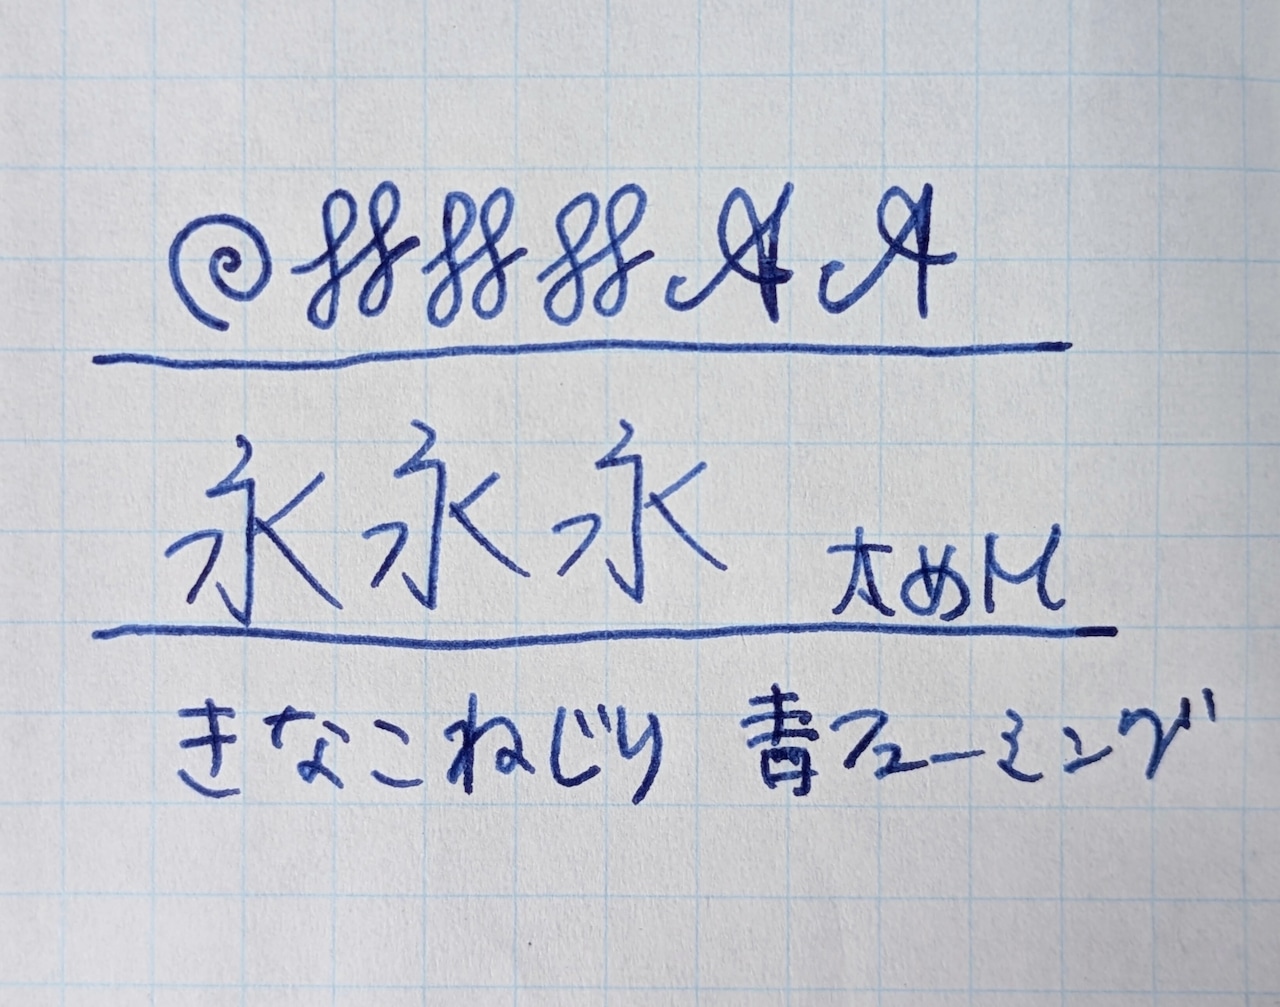 永永永 太めM
きなこねじり 青フューミング